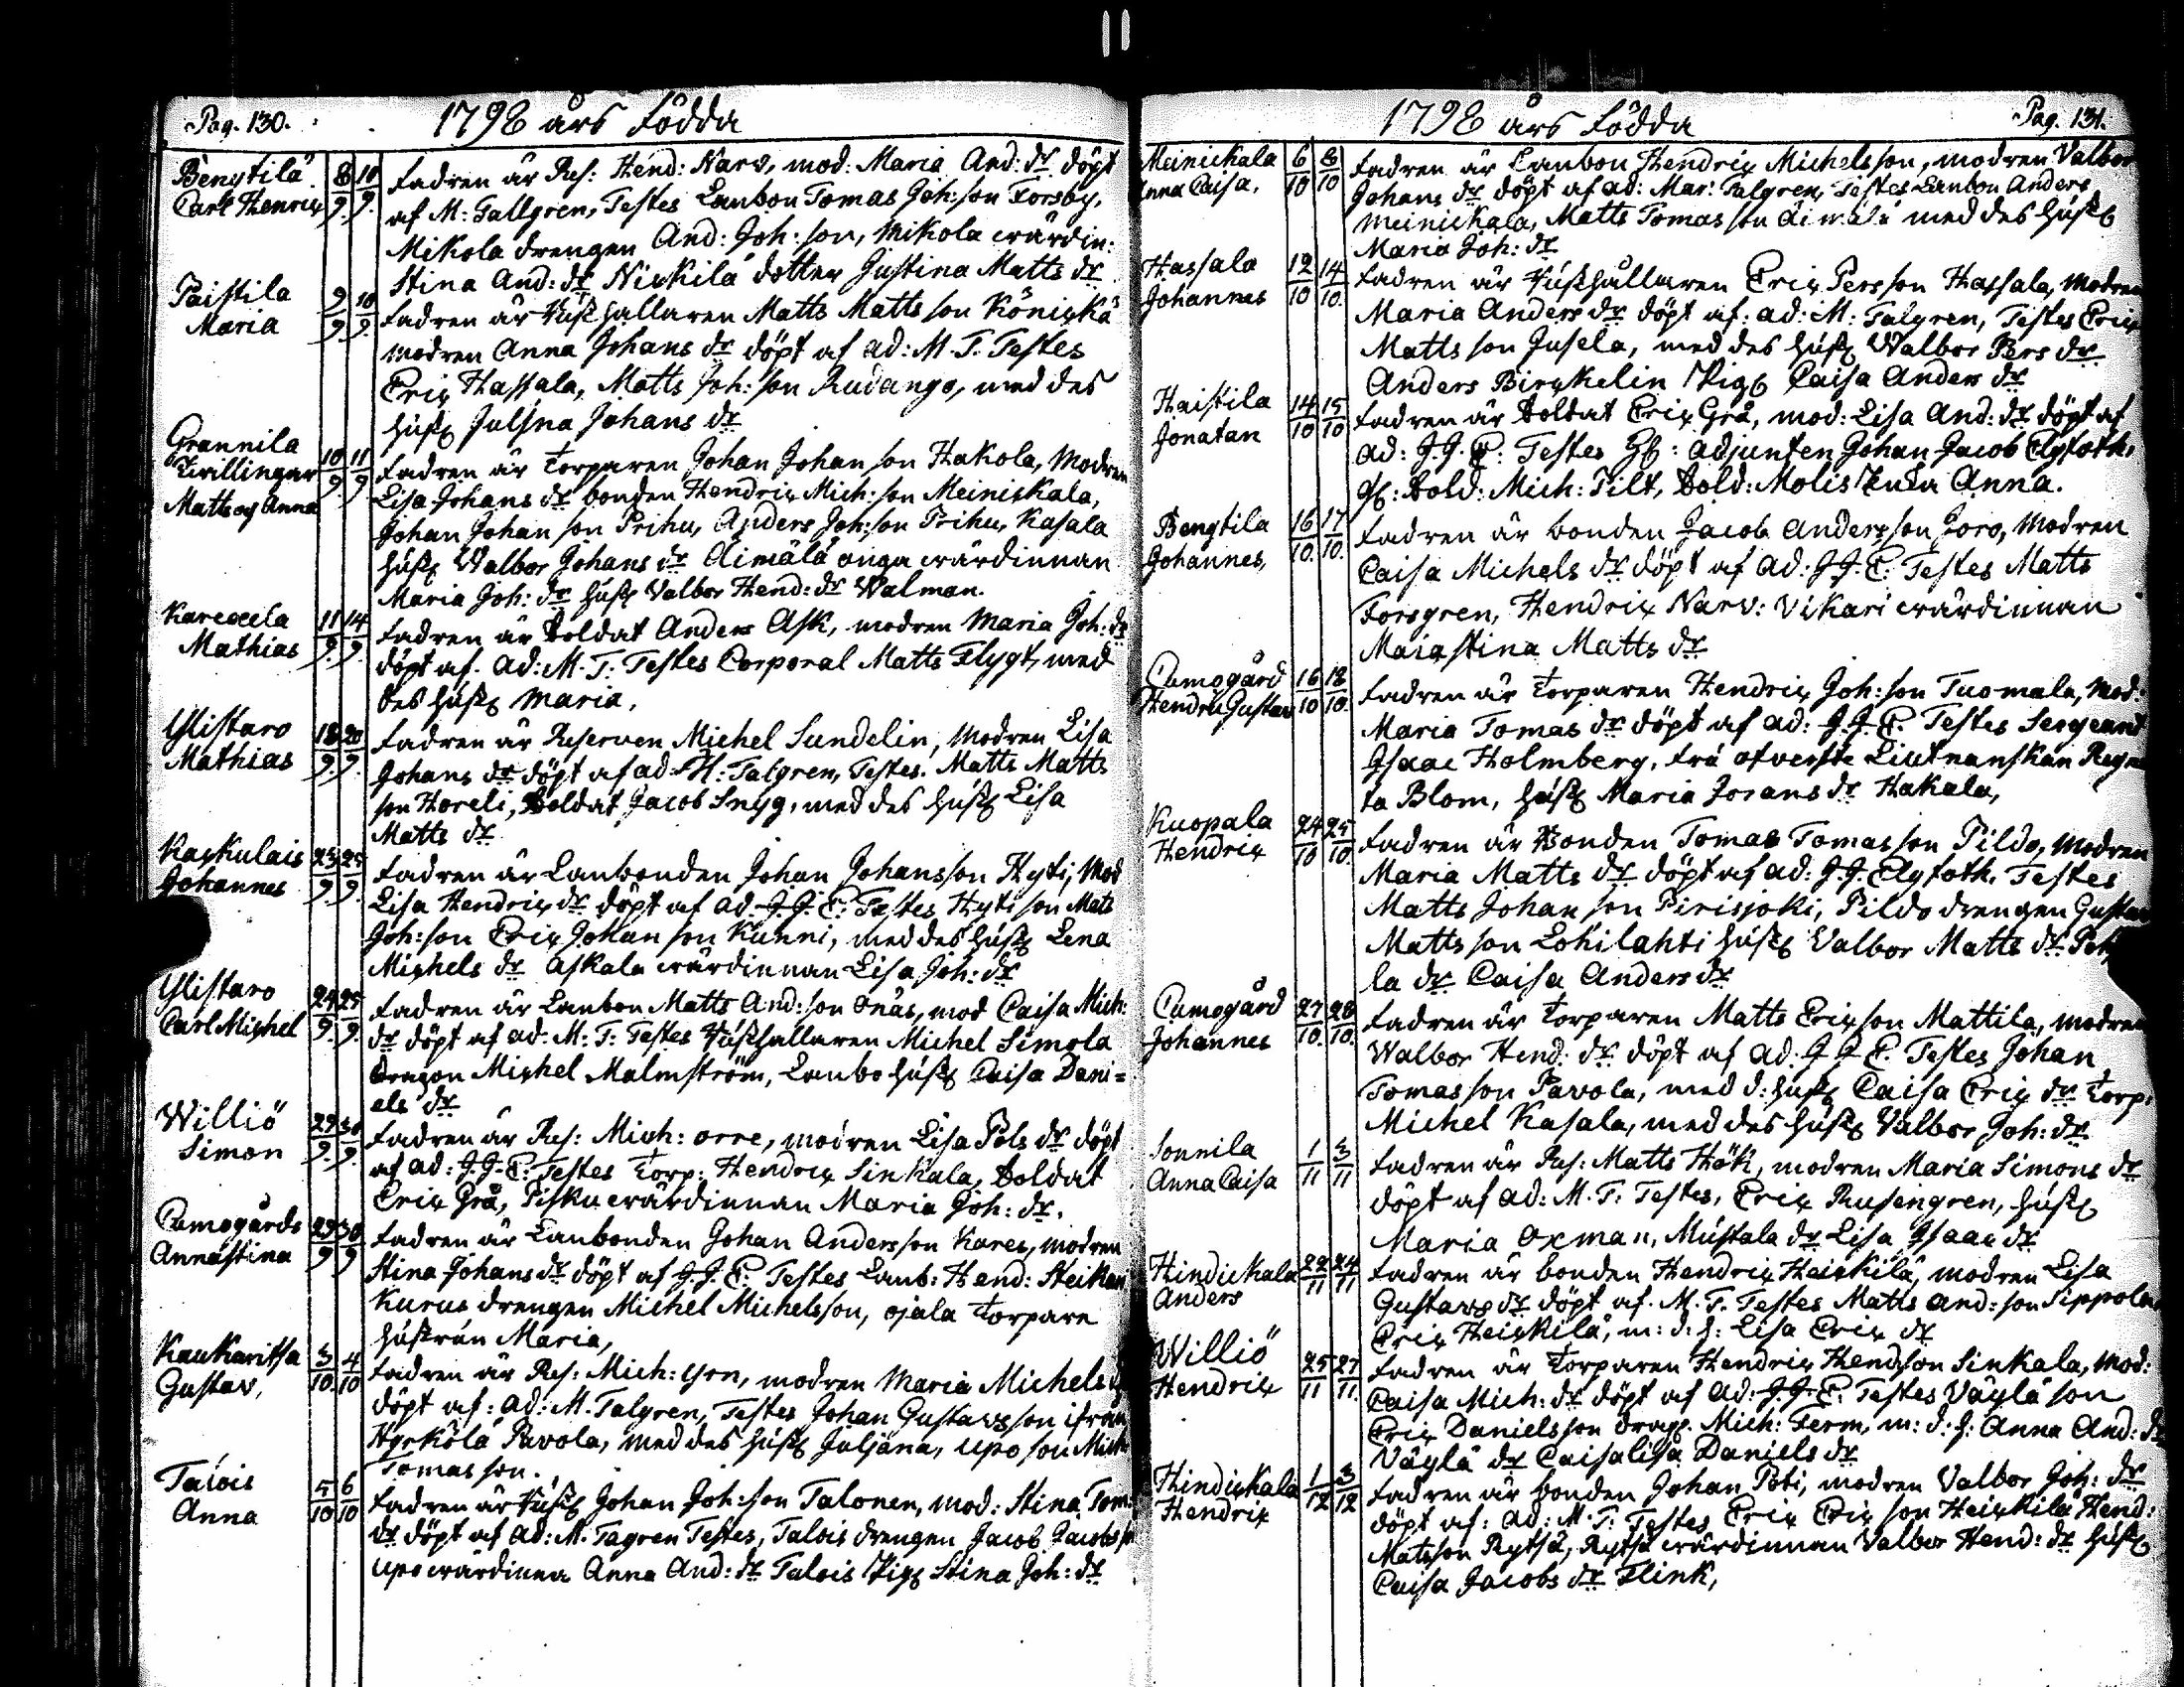 Pag. 130.
1798 års Födda
Bengtilä 8/9. 10/9. Fadren är Res: Hend: Narv, mod: Maria And: dr döpt
Carl Henrix af M: Tallgren, Testes Lanbon Tomas Joh: son Forsby,
Mikola drengen And: Joh: son, Mikola wärdin:
Stina And: dr Niskilä dotter Justina Matts dr
Paistila 9/9. 10/9. Fadren är Hushallaren Matts Matts son Köniskä
Maria modren Anna Johans dr döpt af ad: M. T. Testes
Erix Hassala, Matts Joh: son Rudango, med des
hust Julsna Johans dr
Grannila
Twillingar 10/9. 11/9 Fadren är Torparen Johan Johan son Hakola, Modren
Matts og Anna Lisa Johans dr bonden Hendrix Mich: son Meiniskala,
Johan Johan son Prihu, Anders Joh: son Prihu, Kasala
hust Walbor Johans dr Äimälä onga wärdinnan
Maria Joh: dr hust Valbor Hend: dr Walman.
11/9. 14/9. Fadren är Soldat Anders Ask, modren Maria Joh: dr
Mathias döpt af. ad: M. T: Testes Corporal Matts Flygt, med
des hust Maria,
Ylistaro 18/9. 20/9. Fadren är Reserven Michel Sundelin, Modren Lisa
Mathias Johans dr döpt af ad. M: Talgren, Testes. Matts Matts
son Horeli, Soldat Jacob Snyg, med des hust Lisa
Matts dr
Kaskulais 23/9. 25/9. Fadren är Lanbonden Johan Johansson Hyti, Mod
Johannes Lisa Hendrix dr döpt af ad. J. J. E: Testes Hyti son Mats
Joh: son Erix Johan son Kunni, med des hust Lena
Michels dr Askala wärdinnan Lisa Joh: dr
Ylistaro 24/9. 25/9. Fadren är Lanbon Matts And: son Onäs, mod Caisa Mich:
Carl Mishel dr döpt af ad: M: T: Testes Hushallaren Michel Simola
Dragon Mishel Malmström, Lanbo hust Caisa Dani=
els dr
Williö 29/9. 30/9. Fadren är Res: Mich: orre, modren Lisa Pols dr döpt
Simon af ad: J. J. E: Testes Torp: Hendrix Sinkala, Soldat
Erix Grå, Pisku wärdinnan Maria Joh: dr.
Cumogårds 29/9 30/9 Fadren är Lanbonden Johan Andersson Kares, modren
Annastina Stina Johans dr döpt af J. J. E: Testes Lanb: Hend: Heikari
Kurus drengen Michel Michelsson, ojala Torpare
hustrun Maria,
Kaukaritsa 3/10. 4/10 Fadren är Res: Mich: yrn, modren Maria Michels
Gustav, döpt af: ad: M. Talgren, Testes Johan Gustavsson ifran
Hyrkölä Pavola, med des hust Juljäna, upo son Mich
Tomas son.
Talois 5/10 6/10 Fadren är Hush Johan Joh: son Talonen, mod: Stina Tom:
Anna dr döpt af ad: M. Tagren Testes, Talois drengen Jacob Jacobs
upo wärdinna Anna And: dr Talois Pig Stina Joh: dr
1798 års Födda
Pag. 131.
Meiniskala 6/10 8/10 Fadren är Lanbon Hendrix Michels son, modren Valbor
Anna Caisa, Johans dr döpt af ad: Mar: Talgren, Testes Lanbon Anders
Meiniskala, Matts Tomas son Äimälä med des hust
Maria Joh: dr
Hassala 12/10 14/10. Fadren är Hushållaren Erix Pers son Hassala, Modren
Johannes Maria Anders dr döpt af: ad: M: Talgren, Testes Erix
Matts son Jusela, med des hust Walbor Pers dr
Anders Birskelin Pig Caisa Anders dr
Haistila 14/10 15/10 Fadren är Soldat Erix Grå, mod: Lisa And: dr döpt af
Jonatan ad: J. J. E: Testes H: adjunten Johan Jacob Elgfoth,
H: Sold: Mich: Pilt, Sold: Molis Anna.
Bengtila 16/10. 17/10. Fadren är bonden Jacob Andersson Joro, Modren
Johannes, Caisa Michels dr döpt af ad: J. J. E: Testes Matts
Forsgren, Hendrix Narv: Vikari wärdinnan
Maiastina Matts dr
Cumogård 16/10 18/10. Fadren är Torparen Hendrix Joh: son Tuomala, Mod:
Hendri Gustav Maria Tomas dr döpt af ad: J. J. E. Testes Sergeant
Isaac Holmberg, Fru ofverste Lieutnanskan Regi
ta Blom, hust Maria Jorans dr Hakala,
Kuopala 24/10 25/10. Fadren är Bonden Tomas Tomas son Pildo, Modren
Hendrix Maria Matts dr döpt af ad: J. J. Elgfoth. Testes
Matts Johan son Pirisjoki, Pildo drengen Gustav
Matts son Lohilahti hust Valbor Matts dr
la dr Caisa Anders dr
Cumogård 27/10. 28/10. Fadren är Torparen Matts Erixson Mattila, modren
Johannes Walbor Hend: dr döpt af ad: J. J. E. Testes Johan
Tomas son Pavola, med d: hust Caisa Erix dr Torp:
Michel Kasala, med des hust Valbor Joh: dr
Sonnila 1/11 3/11 Fadren är Res: Matts Hök, modren Maria Simons dr
Anna Caisa döpt af ad: M. T: Testes, Erix Rusengren, hust
Maria Oxman, Mustala dr Lisa Isaac dr
Hindiskala 22/11 24/11 Fadren är bonden Hendrix Heiskilä, modren Lisa
Anders Gustavs dr döpt af. M. T. Testes Matts And: son Sippola
Erix Heiskilä, m: d: h: Lisa Erix dr
Williö 25/11 27/11. Fadren är Torparen Hendrix Hendson Sinkala, Mod:
Hendrix Caisa Mich: dr döpt af ad: J. J. E: Testes Väylä son
Erix Daniels son Drag. Mich: Ferm, m: d: h: Anna And: dr
Väylä dr Caisalisa Daniels dr
Hindiskala 1/12 3/12 Fadren är bonden Johan Poti, modren Valbor Joh: dr
Hendrix döpt af: ad: M. T: Testes Erix Erix son Heiskila Hend:
Matsson Rytsä, Rytsä wärdinnan Valbor Hend: dr hust
Caisa Jacobs dr Flink,